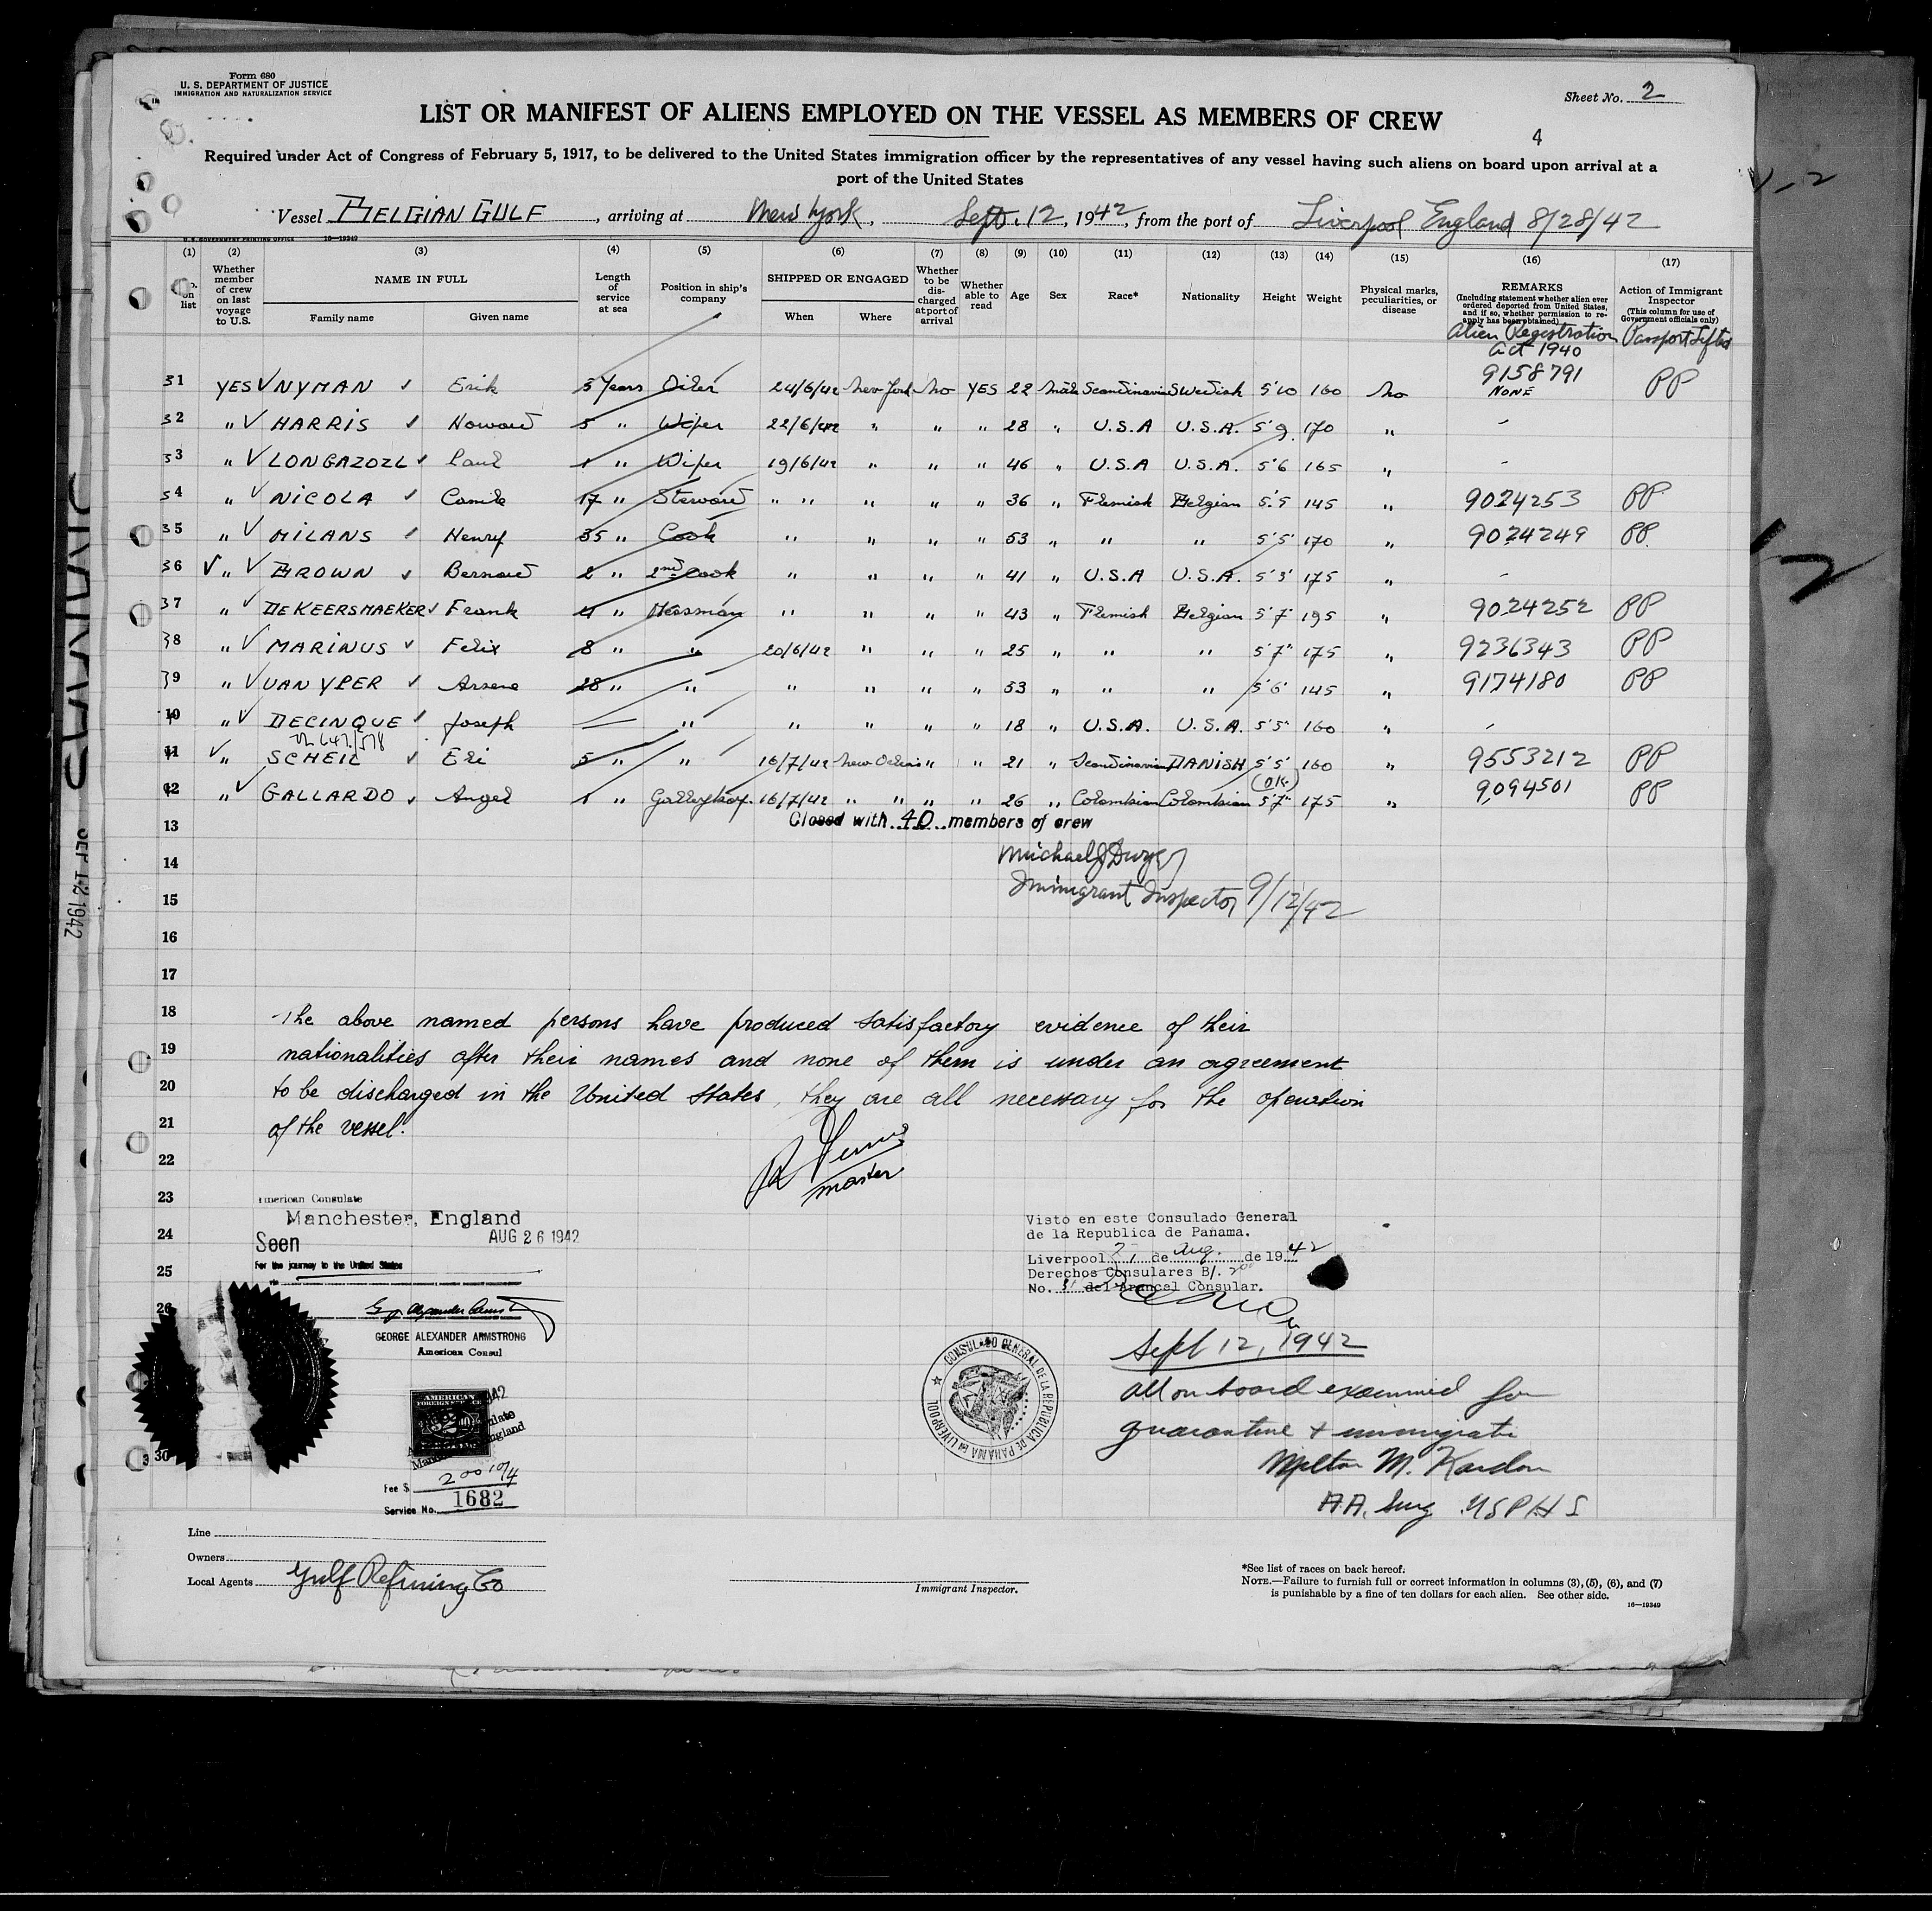 Form 680
U. S. DEPARTMENT OF JUSTICE
IMMIGRATION AND NATURALIZATION SERVICE
Sheet No. 2
LIST OR MANIFEST OF ALIENS EMPLOYED ON THE VESSEL AS MEMBERS OF CREW
4
Required under Act of Congress of February 5, 1917, to be delivered to the United States immigration officer by the representatives of any vessel having such aliens on board upon arrival at a
port of the United States
Vessel BELGIAN GULF, arriving at New York, Sept. 12, 1942, from the port of Liverpool England 8/28/42
U. S. GOVERNMENT PRINTING OFFICE 16—19349
(1) (2) (3) (4) (5) (6) (7) (8) (9) (10) (11) (12) (13) (14) (15) (16) (17)
No. on list
Whether member of crew on last voyage to U.S.
NAME IN FULL
Family name Given name
Length of service at sea
Position in ship's company
SHIPPED OR ENGAGED
When Where
Whether to be discharged at port of arrival
Whether able to read
Age Sex Race* Nationality Height Weight
Physical marks, peculiarities, or disease
REMARKS
(Including statement whether alien ever ordered deported from United States, and if so, whether permission to reapply has been obtained)
Action of Immigrant Inspector
(This column for use of Government officials only)
Alien Registration Act 1940
Passport Lifted
31 YES NYMAN Erik 5 Years Oiler 24/6/42 New York No YES 22 Male Scandinavian Swedish 5'10 160 No 9158791 NONE PP
32 " HARRIS Howard 5 " Wiper 22/6/42 " " " 28 " U.S.A U.S.A. 5'9 170 " -
33 " LONGAZOZL Paul 1 " Wiper 19/6/42 " " " 46 " U.S.A U.S.A. 5'6 165 " -
34 " NICOLA Camile 17 " Steward " " " " " 36 " Flemish Belgian 5'5 145 " 9024253 PP
35 " MILANS Henry 35 " Cook " " " " 53 " " " 5'5" 170 " 9024249 PP
36 " BROWN Bernard 2 " 2nd Cook " " " " 41 " U.S.A U.S.A. 5'3" 175 " -
37 " DEKEERSMAEKER Frank 4 " Messman " " " " 43 " Flemish Belgian 5'7" 195 " 9024252 PP
38 " MARINUS Felix 8 " " 20/6/42 " " " 25 " " " 5'7" 175 " 9236343 PP
39 " VAN YPER Arsene 28 " " " " " " 53 " " " 5'6" 145 " 9174180 PP
40 " DECINQUE Joseph — " " " " " 18 " U.S.A. U.S.A. 5'5" 160 " -
41 " SCHEIL Eli 5 " " 16/7/42 New Orleans " " 21 " Scandinavian DANISH 5'5' 160 " 9553212 PP
(OK)
42 " GALLARDO Angel 1 " Galleyboy 16/7/42 " " " " 26 " Colombian Colombian 5'7" 175 " 9094501 PP
13 Closed with 40 members of crew
14 Michael J Dwyer
15 Immigrant Inspector 9/12/42
16
17
18 The above named persons have produced satisfactory evidence of their
19 nationalities after their names and none of them is under an agreement
20 to be discharged in the United States, they are all necessary for the operation
21 of the vessel.
22
master
23 American Consulate
Manchester, England
24 Seen AUG 26 1942
25 For the journey to the United States
via
26
GEORGE ALEXANDER ARMSTRONG
American Consul
Visto en este Consulado General
de la Republica de Panama.
Liverpool 27 de Aug. de 1942
Derechos Consulares B/.
No. del Arancel Consular.
CONSULADO GENERAL DE LA REPUBLICA DE PANAMA EN LIVERPOOL
Sept 12, 1942
All on board examined for
quarantine + immigrate
Milton M. Kardon
A.A. Surg USPHS
AMERICAN
FOREIGN SERVICE
30
Fee $ 2 00
Service No. 1682
Line
Owners
Local Agents Gulf Refining Co
Immigrant Inspector.
*See list of races on back hereof.
NOTE.—Failure to furnish full or correct information in columns (3), (5), (6), and (7)
is punishable by a fine of ten dollars for each alien. See other side.
16—19349
SEP 12 1942